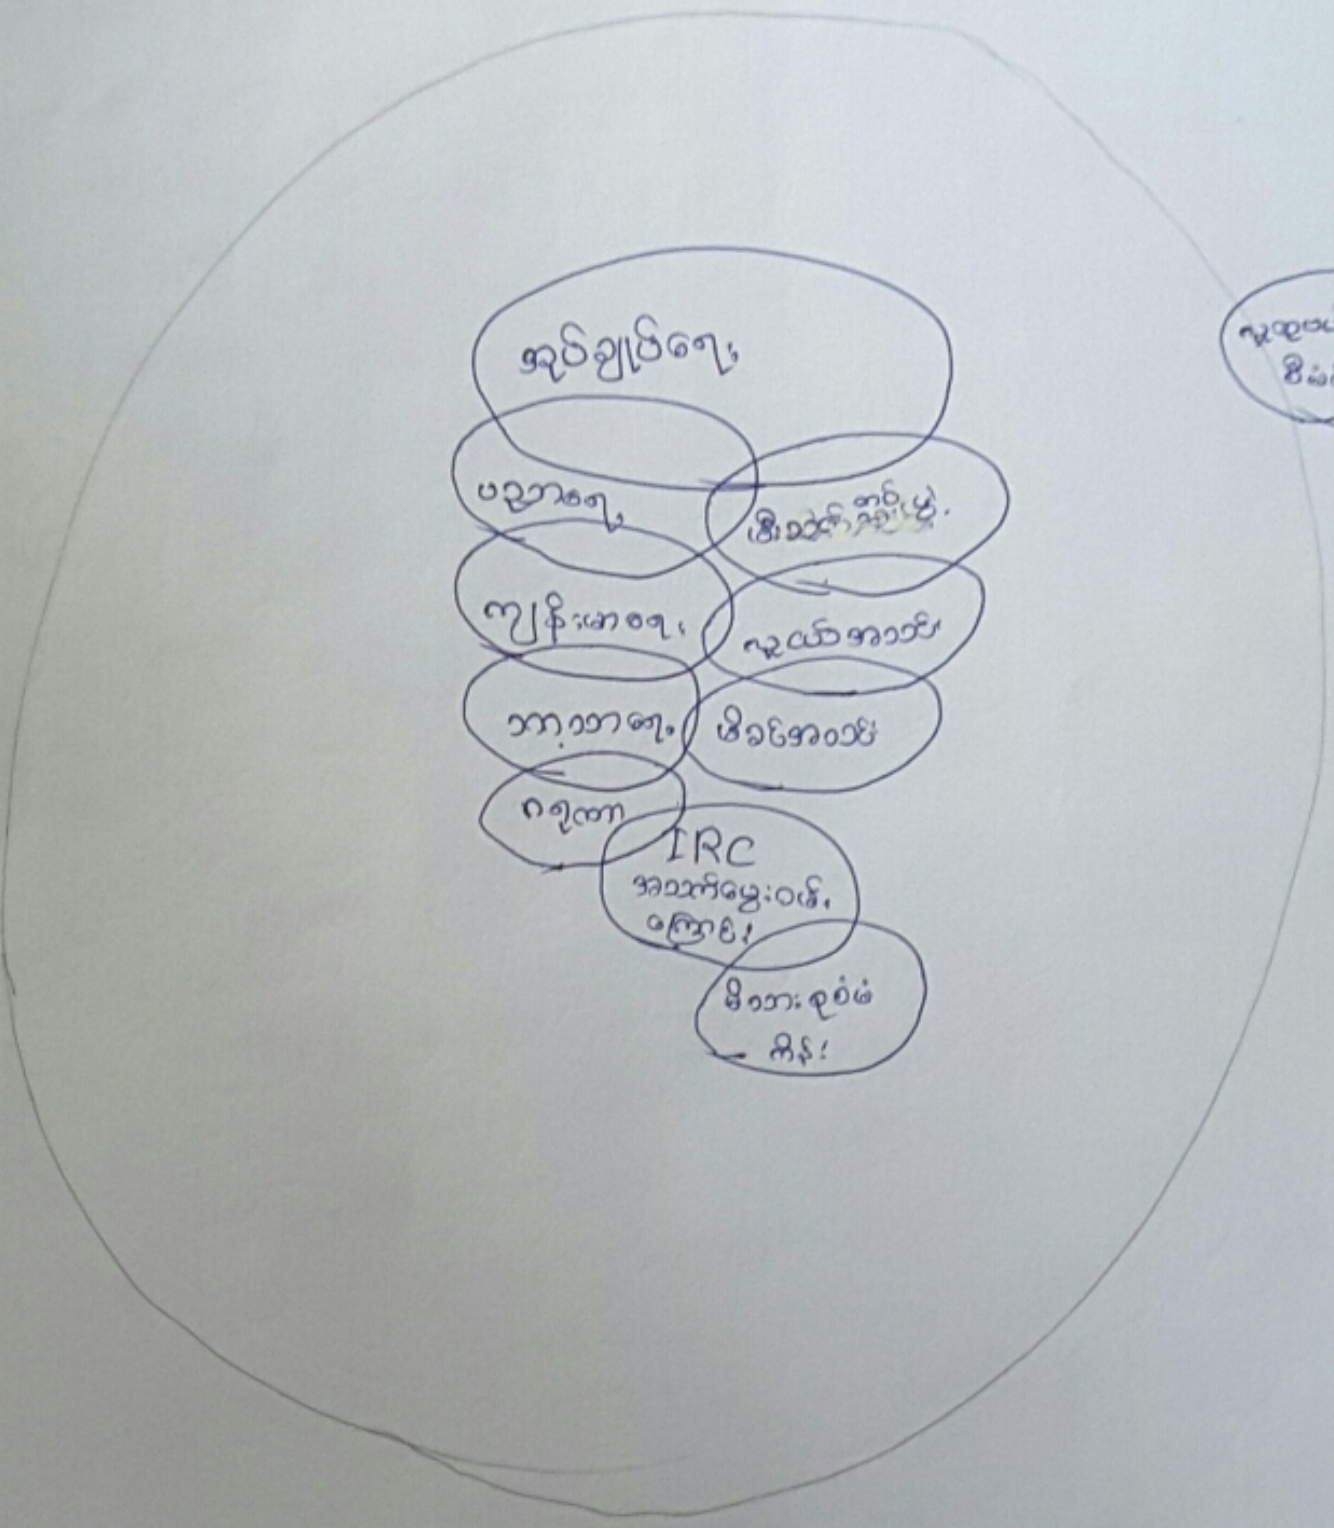 အုပ်ချုပ်ရေး
ပညာရေး
မီးသတ်တပ်ဖွဲ့
ကျန်းမာရေး
လူငယ်အသင်း
ဘာသာရေး
မိခင်အသင်း
ဂရုဏာ
IRC
အသက်မွေးဝမ်း
ကြောင်း
မိသားစုစီမံ
ကိန်း